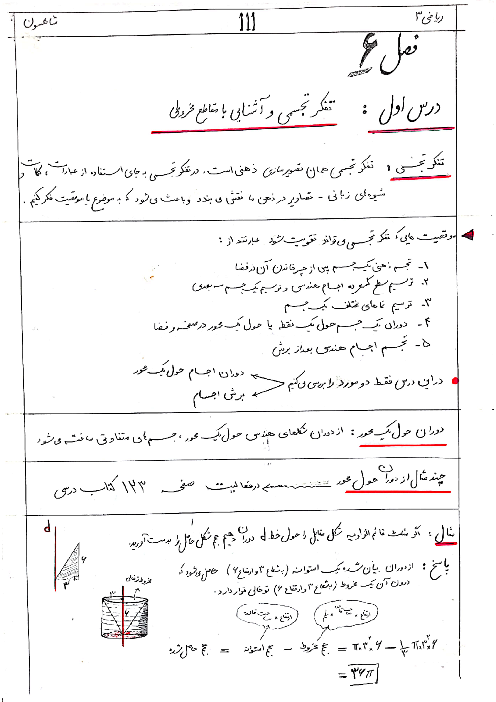 ریاضی ۳
111
تاعسون
فصل ۶
درس اول : تفکر تجسمی و آشنایی با مقاطع مخروطی
تفکر تجسمی : تفکر تجسمی همان تصویرسازی ذهنی است. در تفکر تجسمی به جای استفاده از عبارات، کلمات و
شیوه‌ی زبانی - تصاویر در ذهن ما نقش می بندد و باعث می شود که به موضوع یا موقعیت فکر کنیم.
موقعیت هایی که تفکر تجسمی می تواند تقویت شود عبارتند از :
۱- تجسم ذهنی یک جسم پس از چرخاندن آن در فضا
۲- ترسیم سطح گسترده اجسام هندسی و ترسیم یک جسم سه بعدی
۳- ترسیم نماهای مختلف یک جسم
۴- دوران یک جسم حول یک نقطه یا حول یک محور در صفحه و فضا
۵- تجسم اجسام هندسی بعد از برش
در این درس فقط دو مورد را بررسی می کنیم
دوران اجسام حول یک محور
برش اجسام
دوران حول یک محور : از دوران شکلهای هندسی حول یک محور ، جسم های متفاوتی ساخته می شود
چند مثال از دوران حول محور در فعالیت صفحه ۱۲۳ کتاب درسی
مثال : اگر مثلث قائم الزاویه شکل مقابل را حول خط d دوران دهیم حجم شکل حاصل را بدست آورید.
d
۶
۳
پاسخ : از دوران بیان شده یک استوانه (بشعاع ۳ و ارتفاع ۶) حاصل می شود که
درون آن یک مخروط (بشعاع ۳ و ارتفاع ۶) توخالی قرار دارد.
۳
۶
حجم حاصل شده = حجم استوانه - حجم مخروط = π.۳².۶ - ۱/۳ π.۳².۶
= ۳۶π